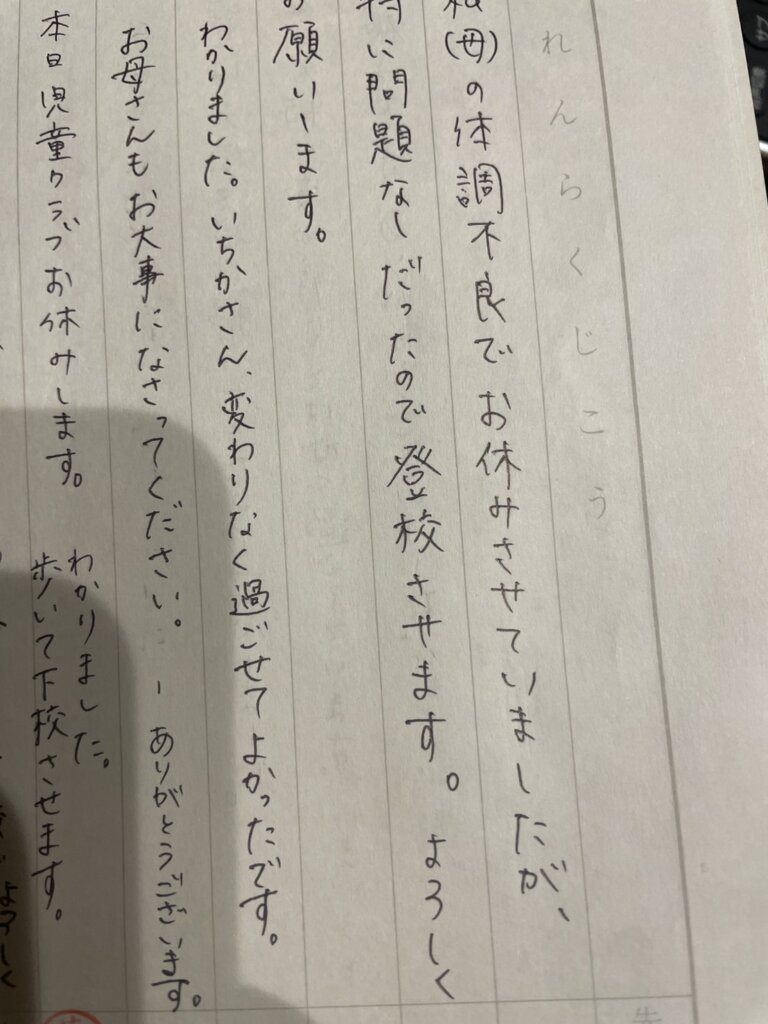 れんらくじこう
私(母)の体調不良でお休みさせていましたが、
特に問題なしだったので登校させます。よろしく
お願いします。
わかりました。いちかさん、変わりなく過ごせてよかったです。
お母さんもお大事になさってください。
ありがとうございます。
本日児童クラブお休みします。
わかりました。
歩いて下校させます。
よろしく